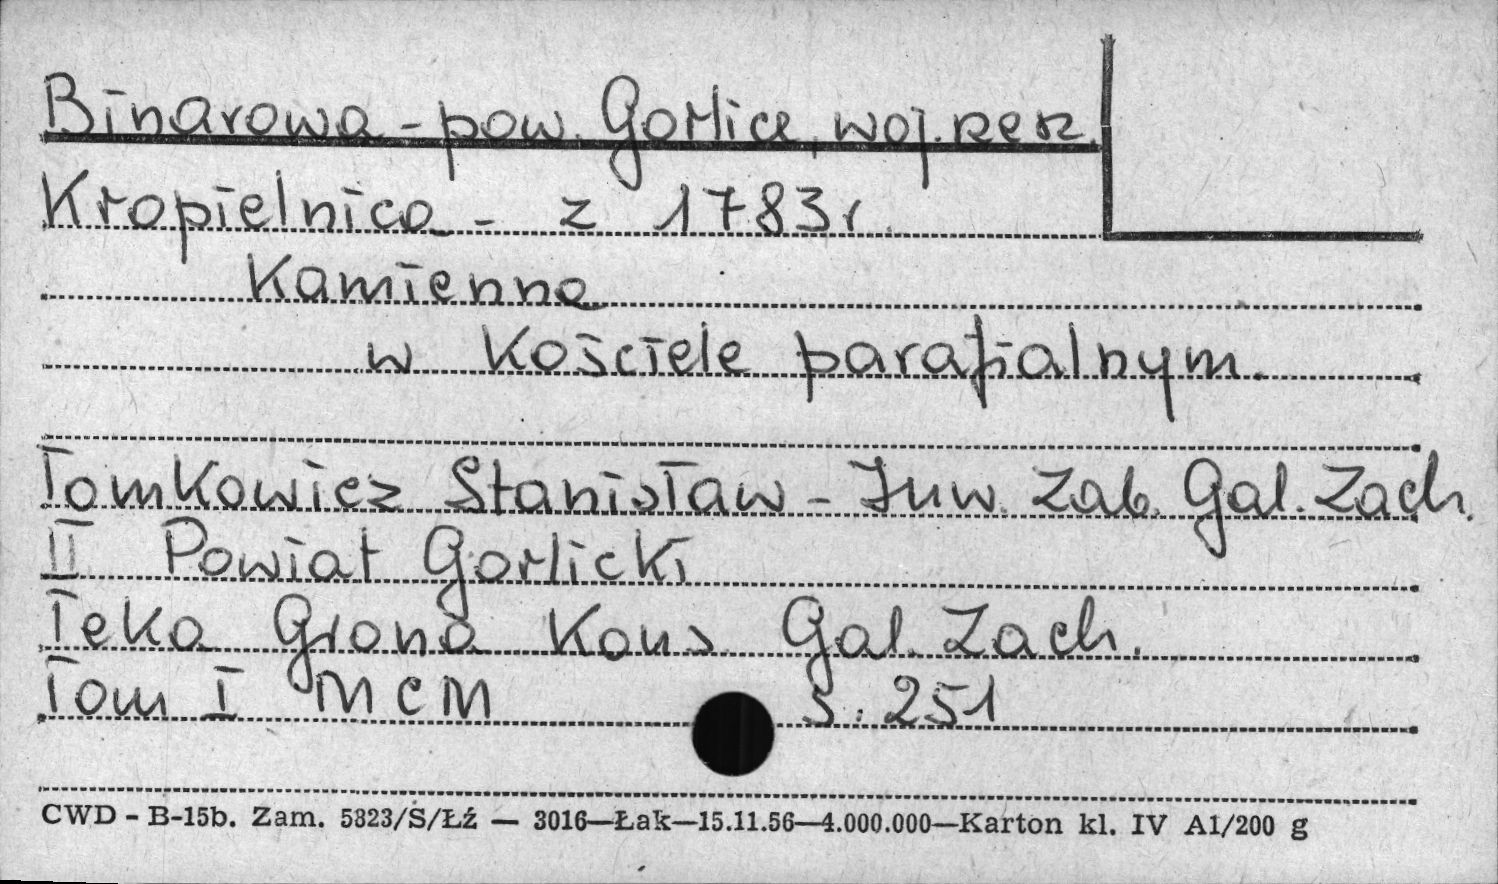 Binarowa - pow. Gorlice, woj. rzesz.
Kropielnica - z 1783 r.
Kamienna
w Kościele parafialnym.
Tomkowicz Stanisław - Inw. Zab. Gal. Zach.
II Powiat Gorlicki
Teka Grona Kons Gal. Zach.
Tom I MCM s. 251
CWD - B-15b. Zam. 5323/S/Łź — 3016—Łak—15.11.56—4.000.000—Karton kl. IV A1/200 g